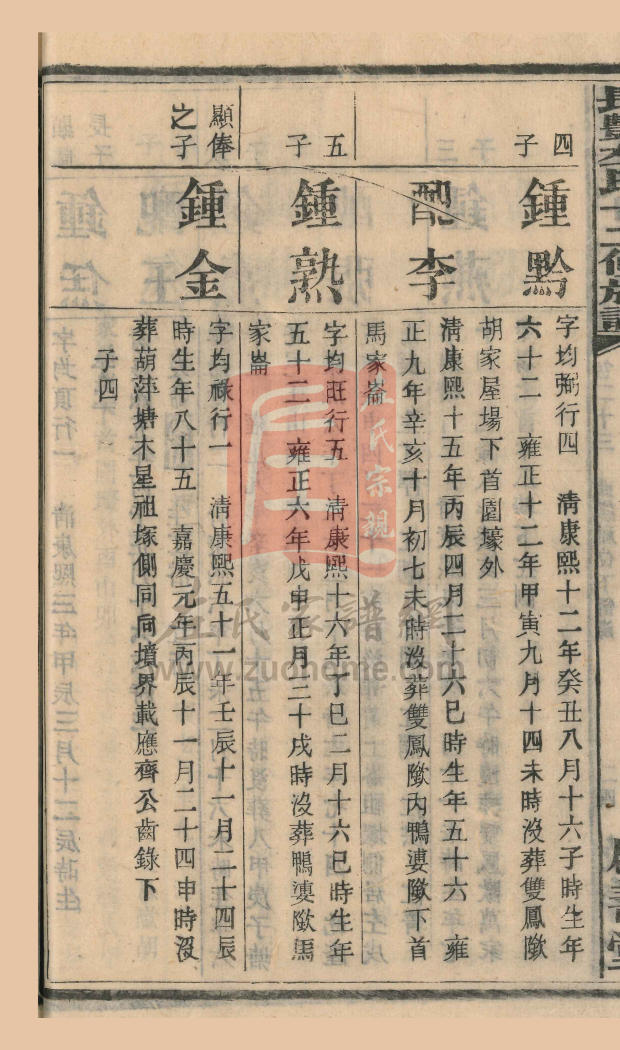 四
子
鍾黔
字均弼行四 清康熙十二年癸丑八月十六子時生年
六十二 雍正十二年甲寅九月十四未時沒葬雙鳳墩
胡家屋場下首園壕外
配李
清康熙十五年丙辰四月二十六巳時生年五十六 雍
正九年辛亥十月初七未時沒葬雙鳳墩內鴨婆墩下首
馬家崙
五
子
鍾熟
字均旺行五 清康熙十六年丁巳二月十六巳時生年
五十二 雍正六年戊申正月二十戌時沒葬鴨婆墩馬
家崙
顯俸
之子
鍾金
字均祿行一 清康熙五十一年壬辰十一月二十四辰
時生年八十五 嘉慶元年丙辰十一月二十四申時沒
葬葫萍塘木星祖塚側同向墳界載應齊公齒錄下
子四
左氏宗親
左氏家譜網
www.zuohome.com